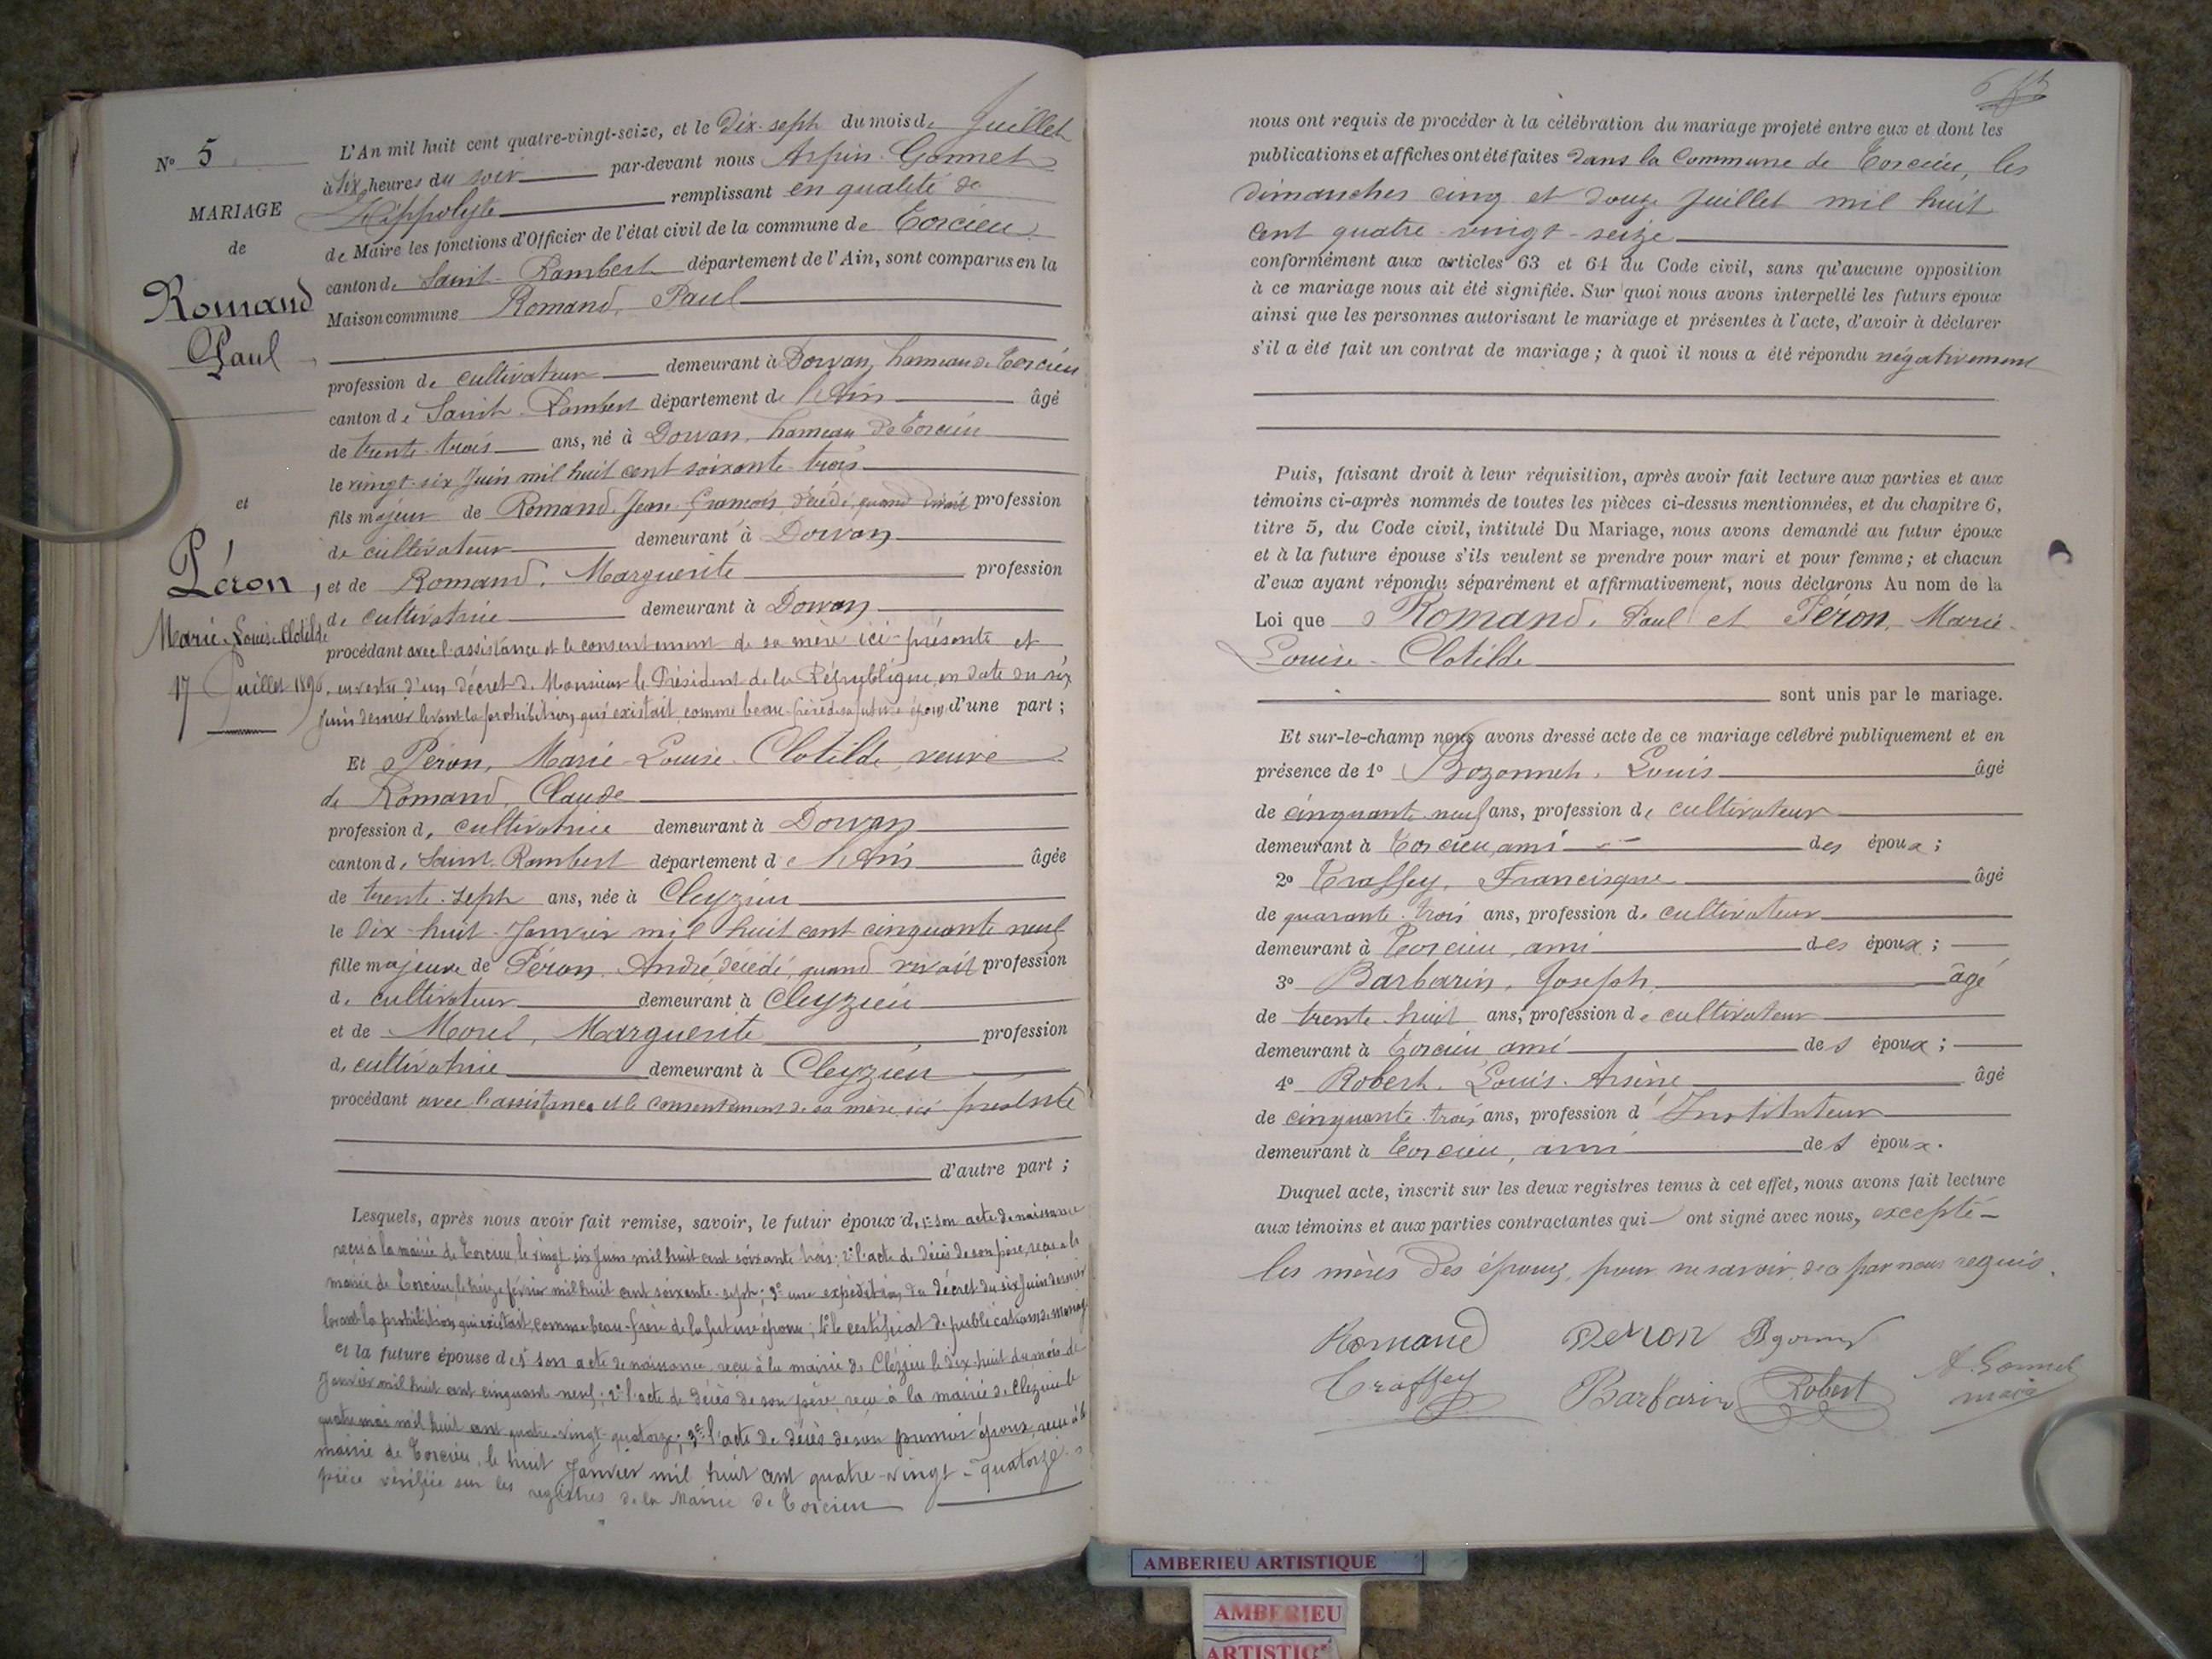 N° 5
MARIAGE
de
Romand
Paul
et
Péron,
Marie-Louise-Clotilde
17 Juillet 1896.
L'An mil huit cent quatre-vingt-seize, et le Dix-sept du mois de Juillet
à six heures du soir par-devant nous Arpin-Gonnet
Hippolyte remplissant en qualité de
de Maire les fonctions d'Officier de l'état civil de la commune de Torcieu
canton de Saint-Rambert département de l'Ain, sont comparus en la
Maison commune Romand, Paul
profession de cultivateur demeurant à Dorvan, hameau de Torcieu
canton de Saint-Rambert département de l'Ain âgé
de trente-trois ans, né à Dorvan, hameau de Torcieu
le vingt-six Juin mil huit cent soixante-trois
fils majeur de Romand, Jean-François, décédé, quand vivait profession
de cultivateur demeurant à Dorvan
et de Romand, Marguerite profession
de cultivatrice demeurant à Dorvan
procédant avec l'assistance et le consentement de sa mère ici présente et
en vertu d'un décret de Monsieur le Président de la République, en date du six
Juin dernier levant la prohibition qui existait comme beau-frère de sa future épouse d'une part;
Et Péron, Marie-Louise-Clotilde, veuve
de Romand, Claude
profession de cultivatrice demeurant à Dorvan
canton de Saint-Rambert département de l'Ain âgée
de trente-sept ans, née à Cleyzieu
le dix-huit Janvier mil huit cent cinquante neuf
fille majeure de Péron, André décédé, quand vivait profession
de cultivateur demeurant à Cleyzieu
et de Morel, Marguerite profession
de cultivatrice demeurant à Cleyzieu
procédant avec l'assistance et le consentement de sa mère, ici présente
d'autre part;
Lesquels, après nous avoir fait remise, savoir, le futur époux d, 1° son acte de naissance
reçu à la mairie de Torcieu, le vingt-six Juin mil huit cent soixante trois; 2° l'acte de décès de son père, reçu à la
mairie de Torcieu, le treize février mil huit cent soixante-sept; 3° une expédition du décret du six Juin dernier
levant la prohibition qui existait, comme beau-frère de la future épouse; 4° le certificat de publications de mariage
et la future épouse de 1° son acte de naissance reçu à la mairie de Clézieu le dix-huit du mois de
Janvier mil huit cent cinquante neuf; 2° l'acte de décès de son père, reçu à la mairie de Clézieu le
quatre mai mil huit cent quatre-vingt-quatorze; 3° l'acte de décès de son premier époux, reçu à la
mairie de Torcieu, le huit Janvier mil huit cent quatre-vingt-quatorze
pièce vérifiée sur les registres de la Mairie de Torcieu
nous ont requis de procéder à la célébration du mariage projeté entre eux et dont les
publications et affiches ont été faites dans la Commune de Torcieu, les
dimanches cinq et douze Juillet mil huit
cent quatre-vingt-seize
conformément aux articles 63 et 64 du Code civil, sans qu'aucune opposition
à ce mariage nous ait été signifiée. Sur quoi nous avons interpellé les futurs époux
ainsi que les personnes autorisant le mariage et présentes à l'acte, d'avoir à déclarer
s'il a été fait un contrat de mariage; à quoi il nous a été répondu négativement
Puis, faisant droit à leur réquisition, après avoir fait lecture aux parties et aux
témoins ci-après nommés de toutes les pièces ci-dessus mentionnées, et du chapitre 6,
titre 5, du Code civil, intitulé Du Mariage, nous avons demandé au futur époux
et à la future épouse s'ils veulent se prendre pour mari et pour femme; et chacun
d'eux ayant répondu séparément et affirmativement, nous déclarons Au nom de la
Loi que Romand, Paul et Péron, Marie-
Louise-Clotilde
sont unis par le mariage.
Et sur-le-champ nous avons dressé acte de ce mariage célébré publiquement et en
présence de 1° Bozonnet, Louis âgé
de cinquante-neuf ans, profession de cultivateur
demeurant à Torcieu, ami des époux;
2° Traffey, Francisque âgé
de quarante-trois ans, profession de cultivateur
demeurant à Torcieu, ami des époux;
3° Barbarin, Joseph âgé
de trente-huit ans, profession de cultivateur
demeurant à Torcieu, ami des époux;
4° Robert, Louis-Arsène âgé
de cinquante-trois ans, profession d'Instituteur
demeurant à Torcieu, ami des époux.
Duquel acte, inscrit sur les deux registres tenus à cet effet, nous avons fait lecture
aux témoins et aux parties contractantes qui ont signé avec nous, excepté
les mères des époux, pour ne savoir, de ce par nous requis.
Romand Peron
Traffey Barbarin Robert A. Gonnet
maire
AMBERIEU ARTISTIQUE
AMBERIEU
ARTISTIQ